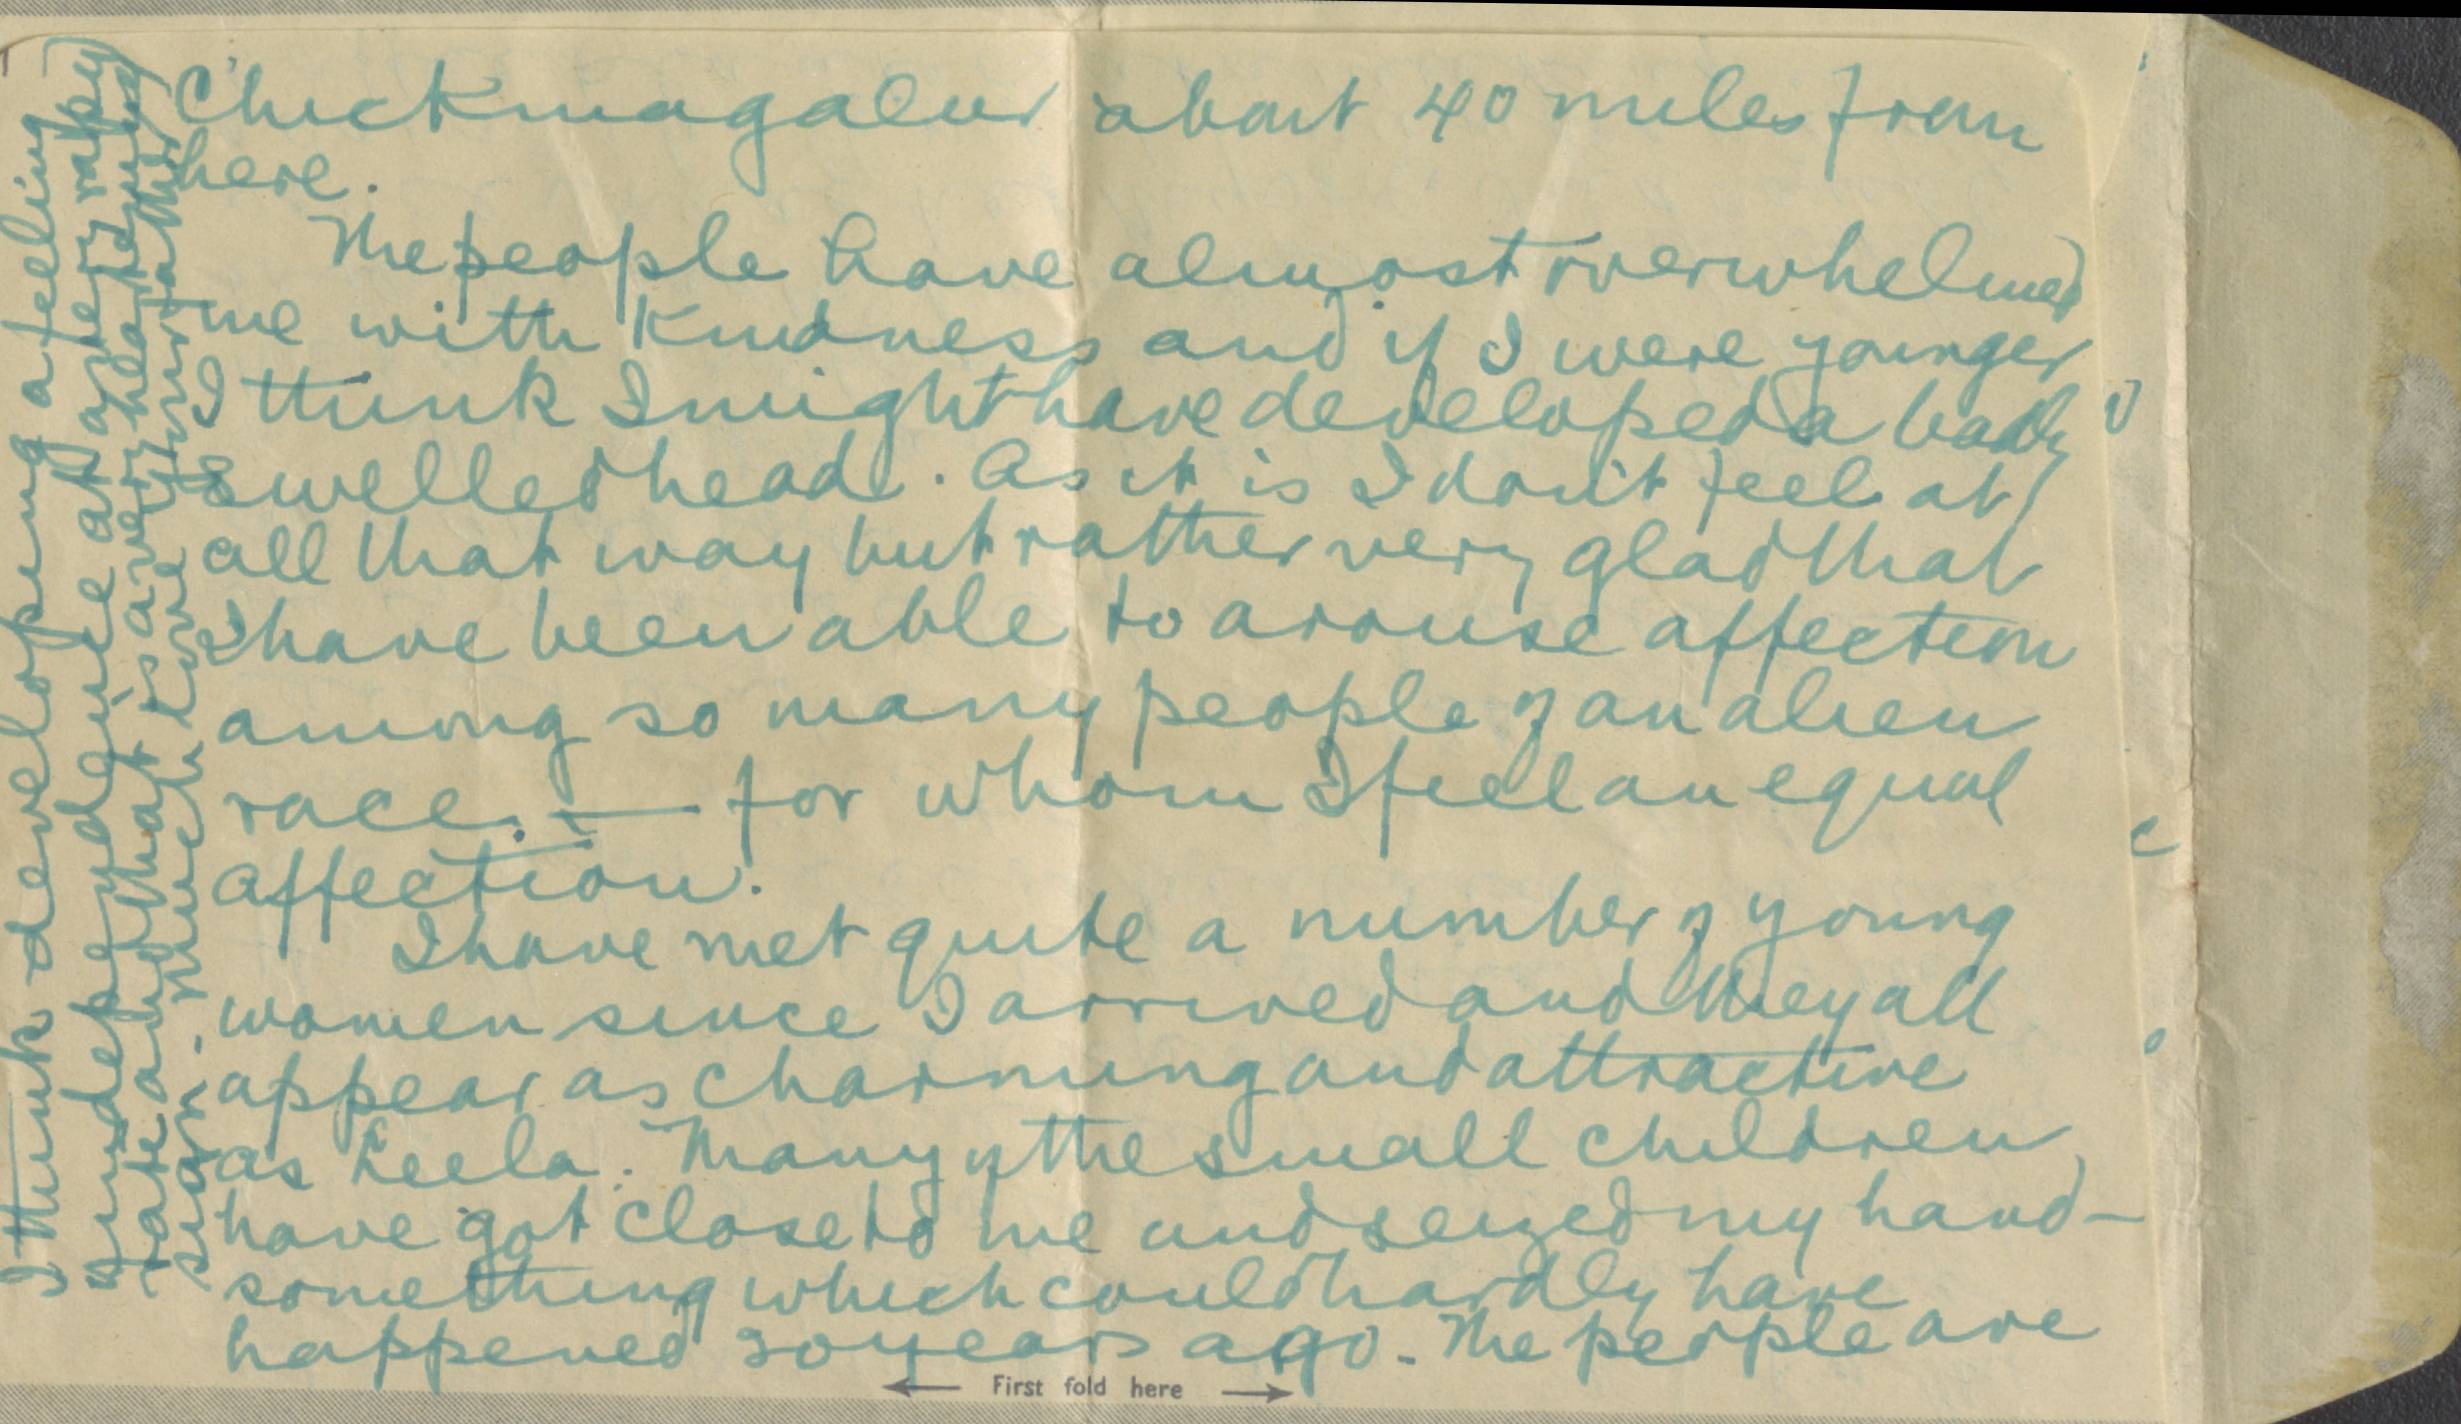 Chickmagalur about 40 miles from
here.
The people have almost overwhelmed
me with kindness and if I were younger
I think I might have developed a badly
swelled head. As it is I don't feel at
all that way but rather very glad that
I have been able to arouse affection
among so many people of an alien
race. — for whom I feel an equal
affection.
I have met quite a number of young
women since I arrived and they all
appear as charming and attractive
as Leela. Many of the small children
have got close to me and seized my hand —
something which could hardly have
happened 30 years ago. The people are
First fold here
I think developing a feeling
of independence at a very rapid
rate and that is a very healthy
sign. Much love